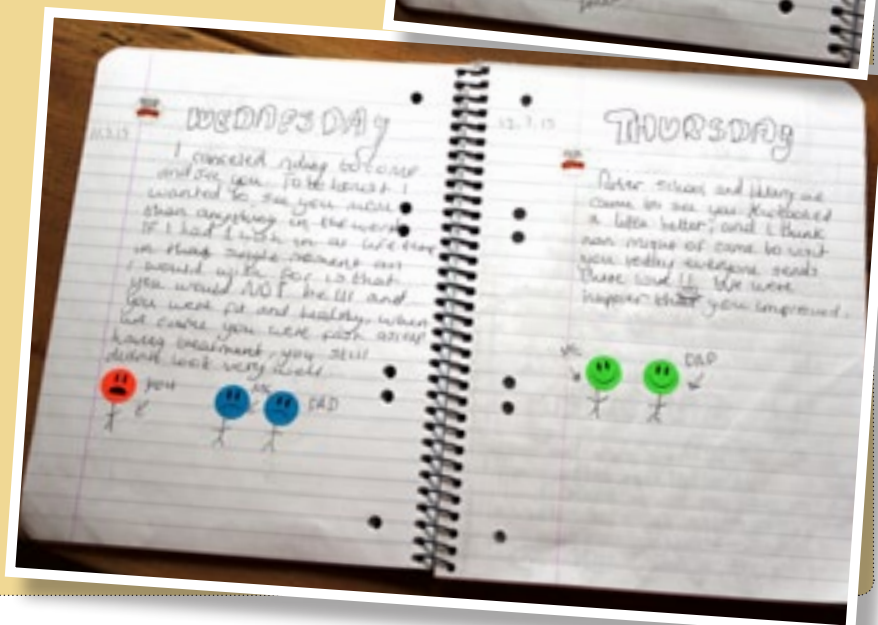 WEDNESDAY
I canceled riding to come
and see you. To be honest I
wanted to see you more
than anything in the world
If I had 1 wish in
that single moment
I would wish for is that
you would NOT be ill and
you were fit and healthy, when
we came you were fast asleep
having treatment, you still
didnt look very well.
you
ME
DAD
THURSDAY
After school and library we
came to see you you looked
a little better, and I think
nan might of came to visit
you today everyone sends
there love!! We were
happier that you improved.
ME
DAD